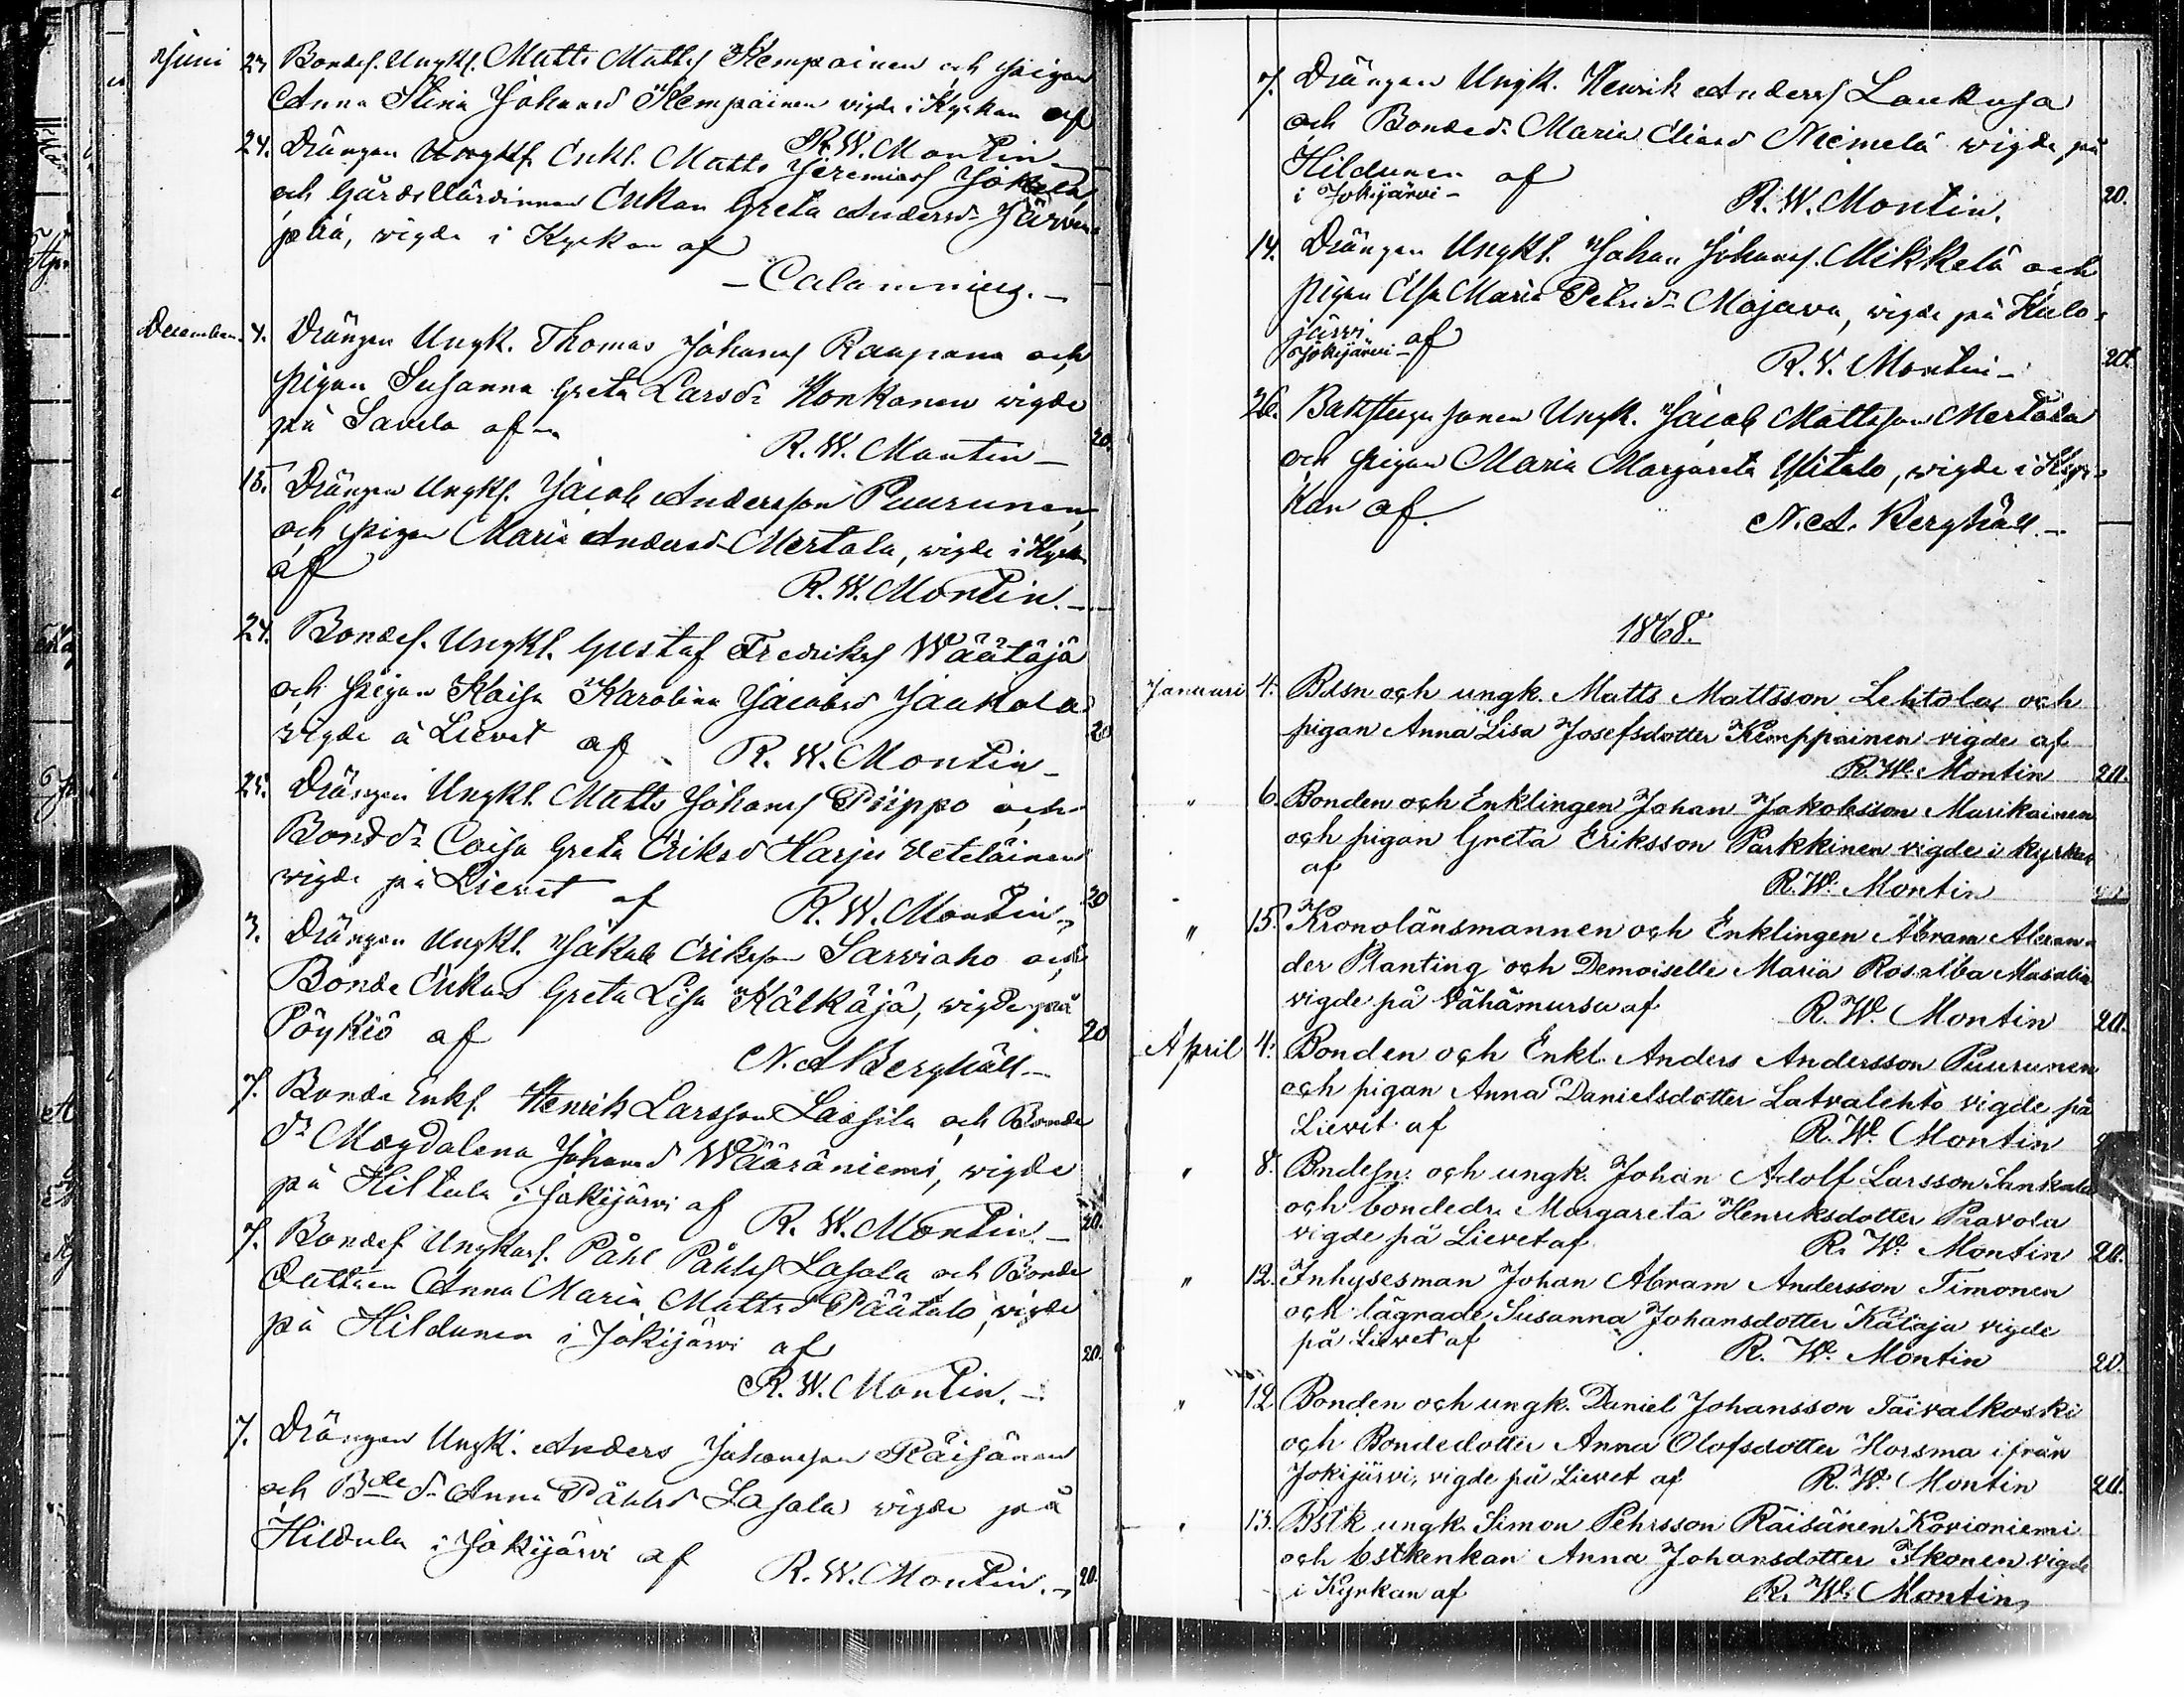 Juni 24 Bondes. Ungkl. Matts Matts Kempainen och pigan
Anna Stina Johansd Kempainen vigde i Kyrkan af
R. W. Montin
24. Drängen Enkl. Matts Jeremias Jokela
och Gårdvärdinnan Enkan Greta Andersdr Järven
pää, vigde i Kyrkan af
Calamnius.
December 4. Drängen Ungk. Thomas Johans Raapana och
pigan Susanna Greta Larsdr Konkanen vigde
på Savela af
R. W. Montin 20.
15. Drängen Ungkl. Jacob Andersson Puurunen
och pigan Maria Andersd Mertala, vigde i Kyrk
af
R. W. Montin.
24. Bondes. Ungkl. Gustaf Fredriks Wäätäjä
och pigan Kaisa Karolina Jacobsd Jaukola
vigde å Lievet af R. W. Montin 20
25. Drängen Ungkl. Matts Johans Piippo och
Bonddr Caisa Greta Eriksd Harju Veteläinen
vigde på Lievet af R. W. Montin 20
3. Drängen Ungkl. Jakob Eriksson Sarviaho och
Bonde Enkan Greta Lisa Kälkäjä, vigde på
Pöykiö af 20
N. A Berghäll
7. Bonde Enkl. Henrik Larsson Lassila och Bonde
dr Magdalena Johansd Wääräniemi, vigde
på Hiltula i Jokijärvi af R. W. Montin 20.
7. Bondes Ungkarl. Påhl Påhls Lasala och Bonde
dottren Anna Maria Mattsd Päätalo, vigde
på Hildunen i Jokijärvi af 20.
R. W. Montin.
7. Drängen Ungk. Anders Johansson Räisänen
och Bde dr Anna Påhlsd Lasala vigde på
Hildula i Jokijärvi af R. W. Montin. 20.
7. Drängen Ungk. Henrik Anders Laukusa
och Bonded: Maria Eliasd Niemelä vigde på
Hildunen af
i Jokijärvi R. W. Montin. 20.
14. Drängen Ungkl. Johan Johans. Mikkelä och
pigan Elsa Maria Petrusdr Majava, vigde på Kulo-
järvi af
Jokijärvi R. W. Montin 20.
26. Ungk. Jacob Mattsson Mertala
och pigan Maria Margareta Ylitalo, vigde i Kyr-
kan af.
N. A. Berghäll.
1868.
Januari 4. Bdsn och ungk. Matts Mattsson Lehtola och
pigan Anna Lisa Josefsdotter Kemppainen vigde af
R. W. Montin 20.
" 6. Bonden och Enklingen Johan Jakobsson Marikainen
och pigan Greta Eriksson Parkkinen vigde i kyrkan
af
R. W. Montin 20
" 15. Kronolänsmannen och Enklingen Abram Alexan-
der Planting och Demoiselle Maria Rosalba Masalin
vigde på Vähämursu af R. W. Montin 20.
April 4. Bonden och Enkl. Anders Andersson Puurunen
och pigan Anna Danielsdotter Latvalehto vigde på
Lievit af R. W. Montin
" 8. Bndesn. och ungk. Johan Adolf Larsson Sankala
och bondedr. Margareta Henriksdotter Paavola
vigde på Lievet af R. W. Montin 20.
" 12. Inhysesman Johan Abram Andersson Timonen
och lägrade Susanna Johansdotter Kätäjä vigde
på Lievet af R. W. Montin 20.
" 12 Bonden och ungk. Daniel Johansson Taivalkoski
och Bondedotter Anna Olofsdotter Horsma ifrån
Jokijärvi, vigde på Lievet af R. W. Montin 20.
" 13. Bstk ungk. Simon Pehrsson Räisänen Kovioniemi
och bstkenkan Anna Johansdotter Ikonen vigde
i Kyrkan af R. W. Montin